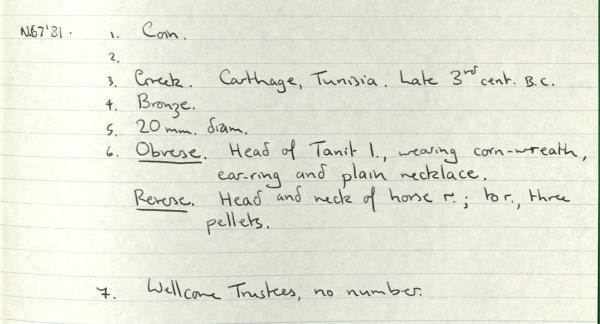 N67'81. 1. Coin.
2.
3. Greek. Carthage, Tunisia. Late 3rd cent. B.C.
4. Bronze.
5. 20 mm. diam.
6. Obverse. Head of Tanit l., wearing corn-wreath,
ear-ring and plain necklace.
Reverse. Head and neck of horse r.; to r., three
pellets.
7. Wellcome Trustees, no number.